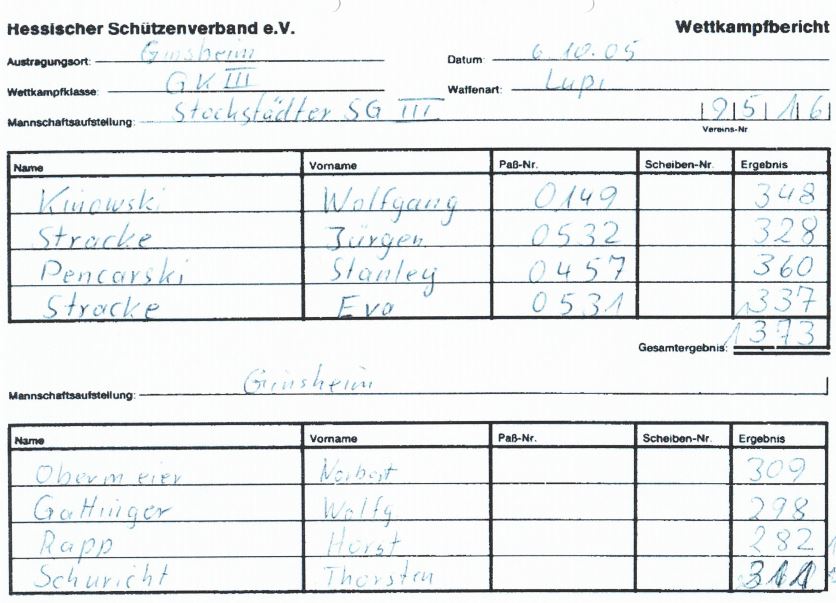 Hessischer Schützenverband e.V. Wettkampfbericht
Austragungsort: Ginsheim Datum: 6.10.05
Wettkampfklasse: GK III Waffenart: Lupi
Mannschaftsaufstellung: Stockstädter SG III 9 5 1 6
Vereins-Nr
Name Vorname Paß-Nr. Scheiben-Nr. Ergebnis
Kinowski Wolfgang 0149 348
Stracke Jürgen 0532 328
Pencarski Stanley 0457 360
Stracke Eva 0531 337
Gesamtergebnis: 1373
Mannschaftsaufstellung: Ginsheim
Name Vorname Paß-Nr. Scheiben-Nr. Ergebnis
Obermeier Norbert 309
Gattinger Wolfg 298
Rapp Horst 282
Schuricht Thorsten 311